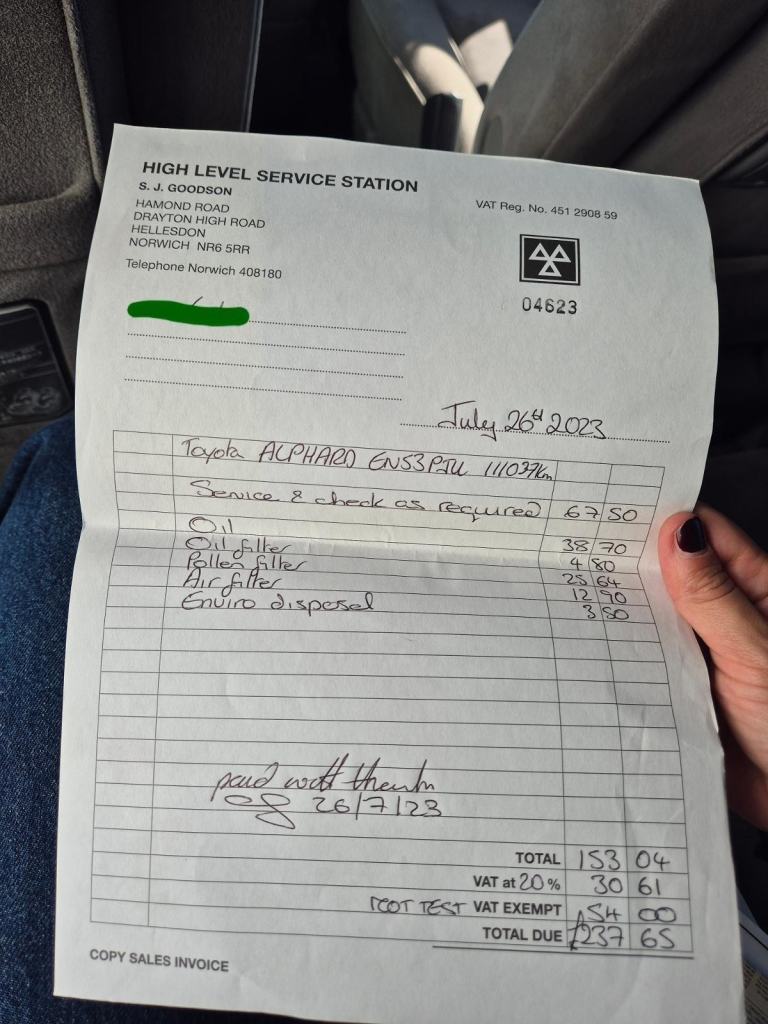 HIGH LEVEL SERVICE STATION
S. J. GOODSON
HAMOND ROAD
DRAYTON HIGH ROAD
HELLESDON
NORWICH NR6 5RR
Telephone Norwich 408180
VAT Reg. No. 451 2908 59
04623
July 26th 2023
Toyota ALPHARD EN53PJU 111037km
Service & check as required 67 50
Oil 38 70
Oil filter 4 80
Pollen filter 25 64
Air filter 12 90
Enviro disposal 3 50
paid with thanks
26/7/23
TOTAL 153 04
VAT at 20% 30 61
MOT TEST VAT EXEMPT 54 00
TOTAL DUE £237 65
COPY SALES INVOICE